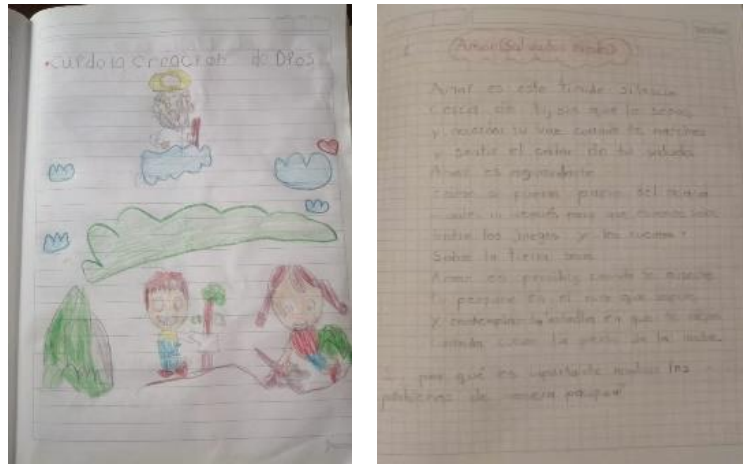 •Cuido la Creación de Dios
Amar (Salvador Novo)
Amar es este tímido silencio
cerca de ti, sin que lo sepas
y recordar tu voz cuando te marchas
y sentir el calor de tu saludo
Amar es aguardarte
como si fueras parte del
ni antes ni después para que estemos solos
entre los juegos y los cuentos
sobre la tierra
Amar es percibir, cuando te ausentes
tu perfume en el aire que respiro
y contemplar la estrella en que te alejas
cuando cierro la puerta de la noche
por qué es importante los
problemas de manera